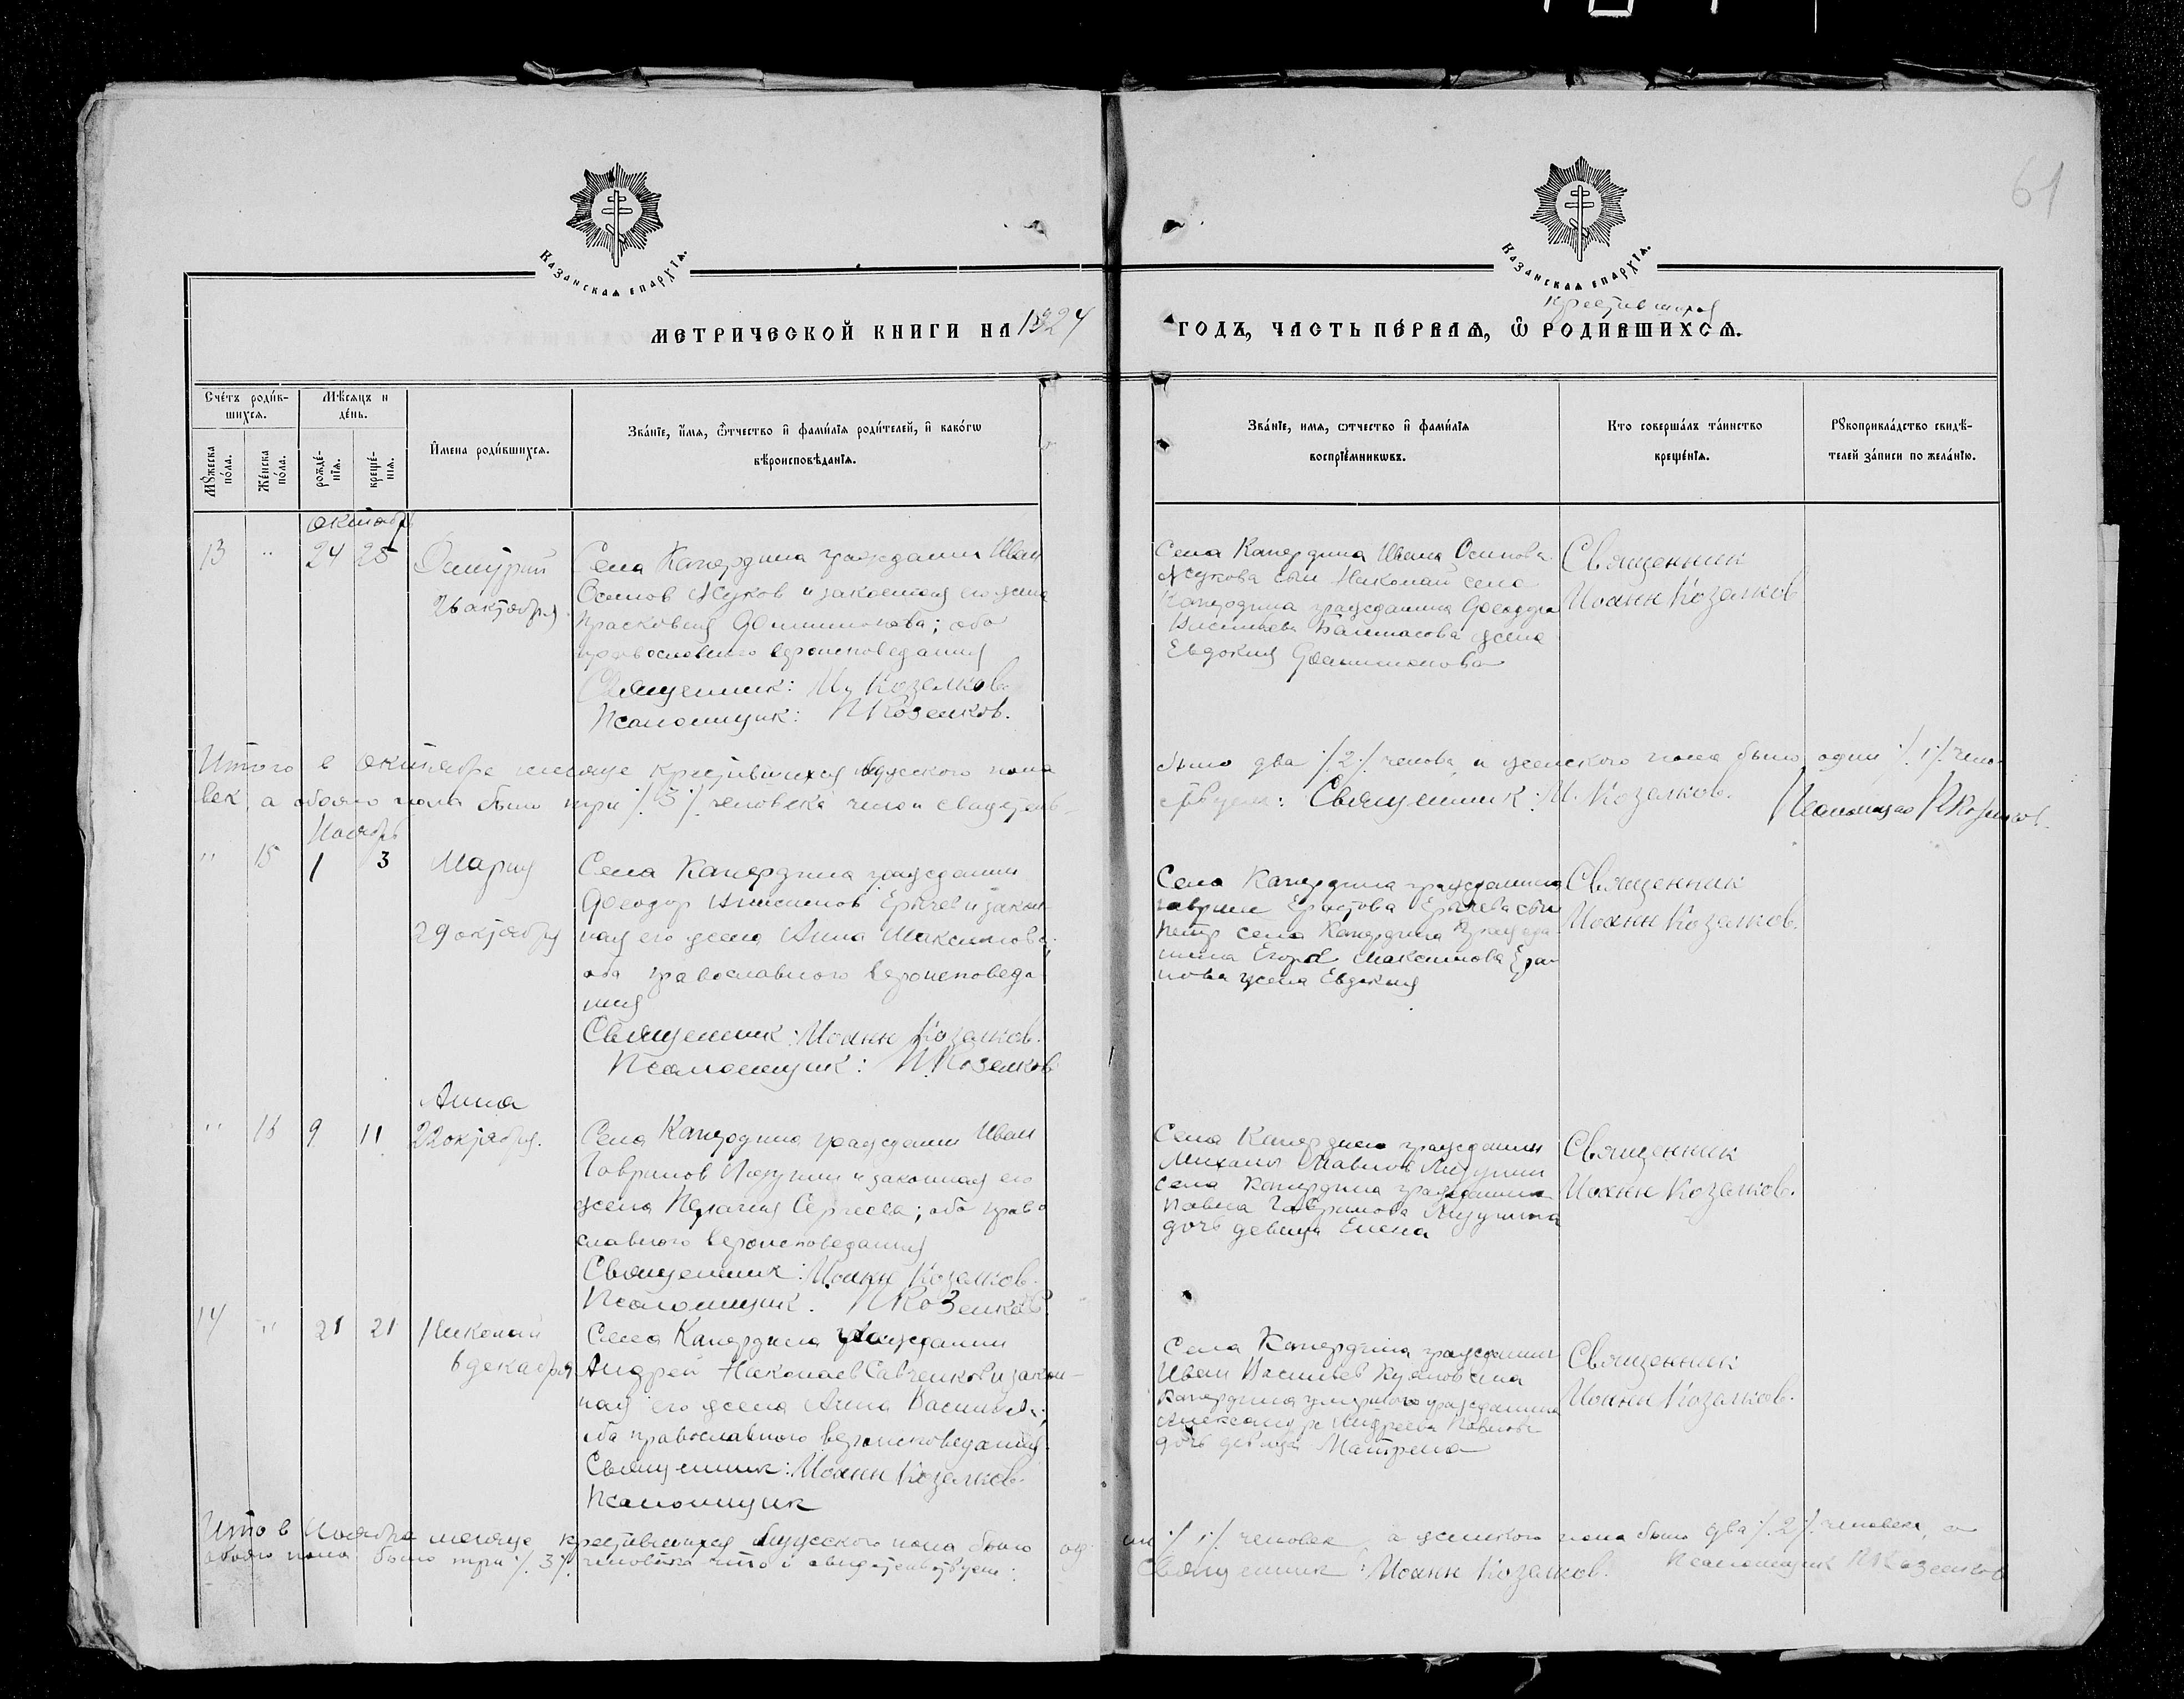 61
Казанская епархїя.
Казанская епархїя.
крестившихся
МЕТРИЧЕСКОЙ КНИГИ НА 1924
ГОДЪ, ЧАСТЬ ПЕРВАЯ, Ѿ РОДИВШИХСЯ.
Сче́тъ роди́в-
шихся.
Мѣсяцъ и
де́нь.
Мꙋжеска
по́ла.
Же́нска
по́ла.
рожде́-
нїя.
креще́-
нїя.
И́мена роди́вшихся.
Зва́нїе, и́мя, ѻ҆́тчество и҆ фами́лїя роди́телей, и҆ како́гѡ
вѣроисповѣ́данїя.
Зва́нїе, имя, ѻтчество и҆ фами́лїя
воспрїе́мникѡвъ.
Кто соверша́лъ та́инство
креще́нїя.
Рꙋкоприкла́дство свидѣ́-
телей за́писи по жела́нїю.
октябрь
13 " 24 25
Димитрий
26 октября
Села Капердина гражданин Иван
Осипов Жуков и законная его жена
Прасковия Филимонова; оба
православного вероисповедания
Священник: Козелков
Псаломщик: П Козелков.
Села Капердина Ивана Осипова
Жукова сын Николай села
Капердина гражданина Феодора
жена
Евдокия Филимонова
Священник
Иоанн Козелков
Итого в октябре месяце крестившихся мужского пола
было два /.2./ человека и женского пола было один /.1./ чело-
век, а обоего пола было три /.3./ человека что и свидетель-
ствуем: Священник: И. Козелков. Псаломщик П Козелков.
Ноябрь
" 15 1 3
Мария
29 октября
Села Капердина гражданин
Феодор Ерычев и закон-
ная его жена Анна Максимова;
оба православного вероисповеда-
ния
Священник: Иоанн Козелков.
Псаломщик: П. Козелков
Села Капердина гражданина
сын
Петр села Капердина гражда-
нина Егора Максимова
жена Евдокия
Священник
Иоанн Козелков.
Анна
" 16 9 11 22 октября.
Села Капердина гражданин Иван
Гаврилов и законная его
жена Пелагия Сергеева; оба право-
славного вероисповедания
Священник: Иоанн Козелков.
Псаломщик. П Козелков.
Села Капердина гражданин
Михаил Павлов
села Капердина гражданина
Павла Гаврилова
дочь девица Елена
Священник
Иоанн Козелков.
14 " 21 21
Николай
6 декабря
Села Капердина гражданин
Андрей Николаев Савченков и закон-
ная его жена Анна Васильева;
оба православного вероисповедания
Священник: Иоанн Козелков.
Псаломщик
Села Капердина гражданин
Иван Васильев села
Капердина умершего гражданина
Александра Андреева Павлова
дочь девица Матрена
Священник
Иоанн Козелков.
Итого в Ноябре месяце крестившихся мужского пола было один /.1./ человек, а женского пола было два /.2./ человека, а
обоего пола было три /.3./ человека что и свидетельствуем: Священник: Иоанн Козелков. Псаломщик П Козелков